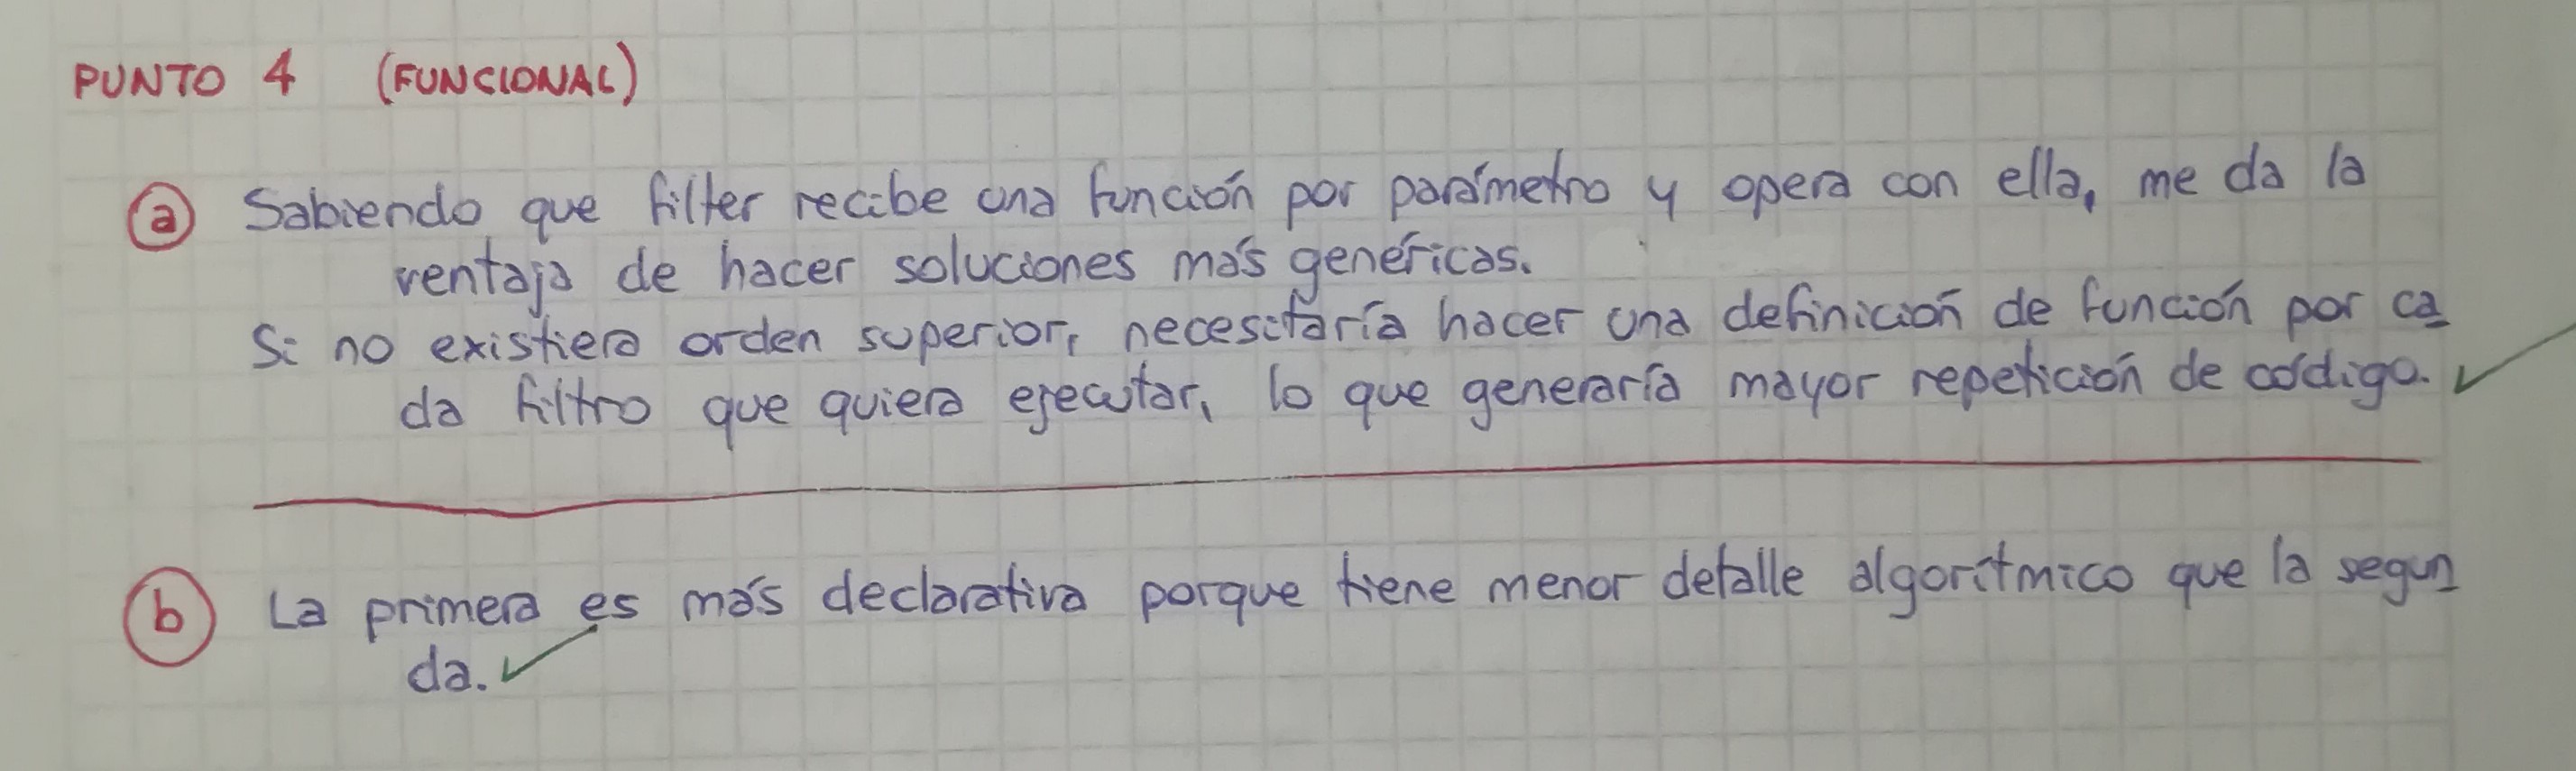 PUNTO 4 (FUNCIONAL)
a Sabiendo que filter recibe una función por parámetro y opera con ella, me da la
ventaja de hacer soluciones más genéricas.
Si no existiera orden superior, necesitaría hacer una definición de función por ca
da filtro que quiera ejecutar, lo que generaría mayor repetición de código.
b La primera es más declarativa porque tiene menor detalle algorítmico que la segun
da.